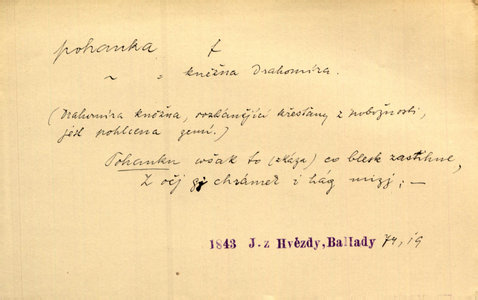 pohanka f
~ = kněžna Drahomíra.
(Drahomíra kněžna, rozhánějící křesťany z pobožnosti,
jest pohlcena zemí.)
Pohanku však to (zkáza) co blesk zastihne,
Z očj gj chrámek i hág mizj; —
1843 J. z Hvězdy, Ballady 74, 19